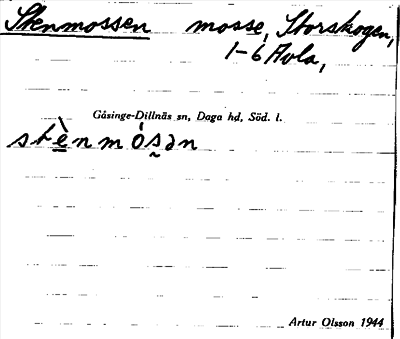 Stenmossen mosse, Storskogen,
1-6 Avla,
Gåsinge-Dillnäs sn, Daga hd, Söd. l.
stènmósən
Artur Olsson 1944